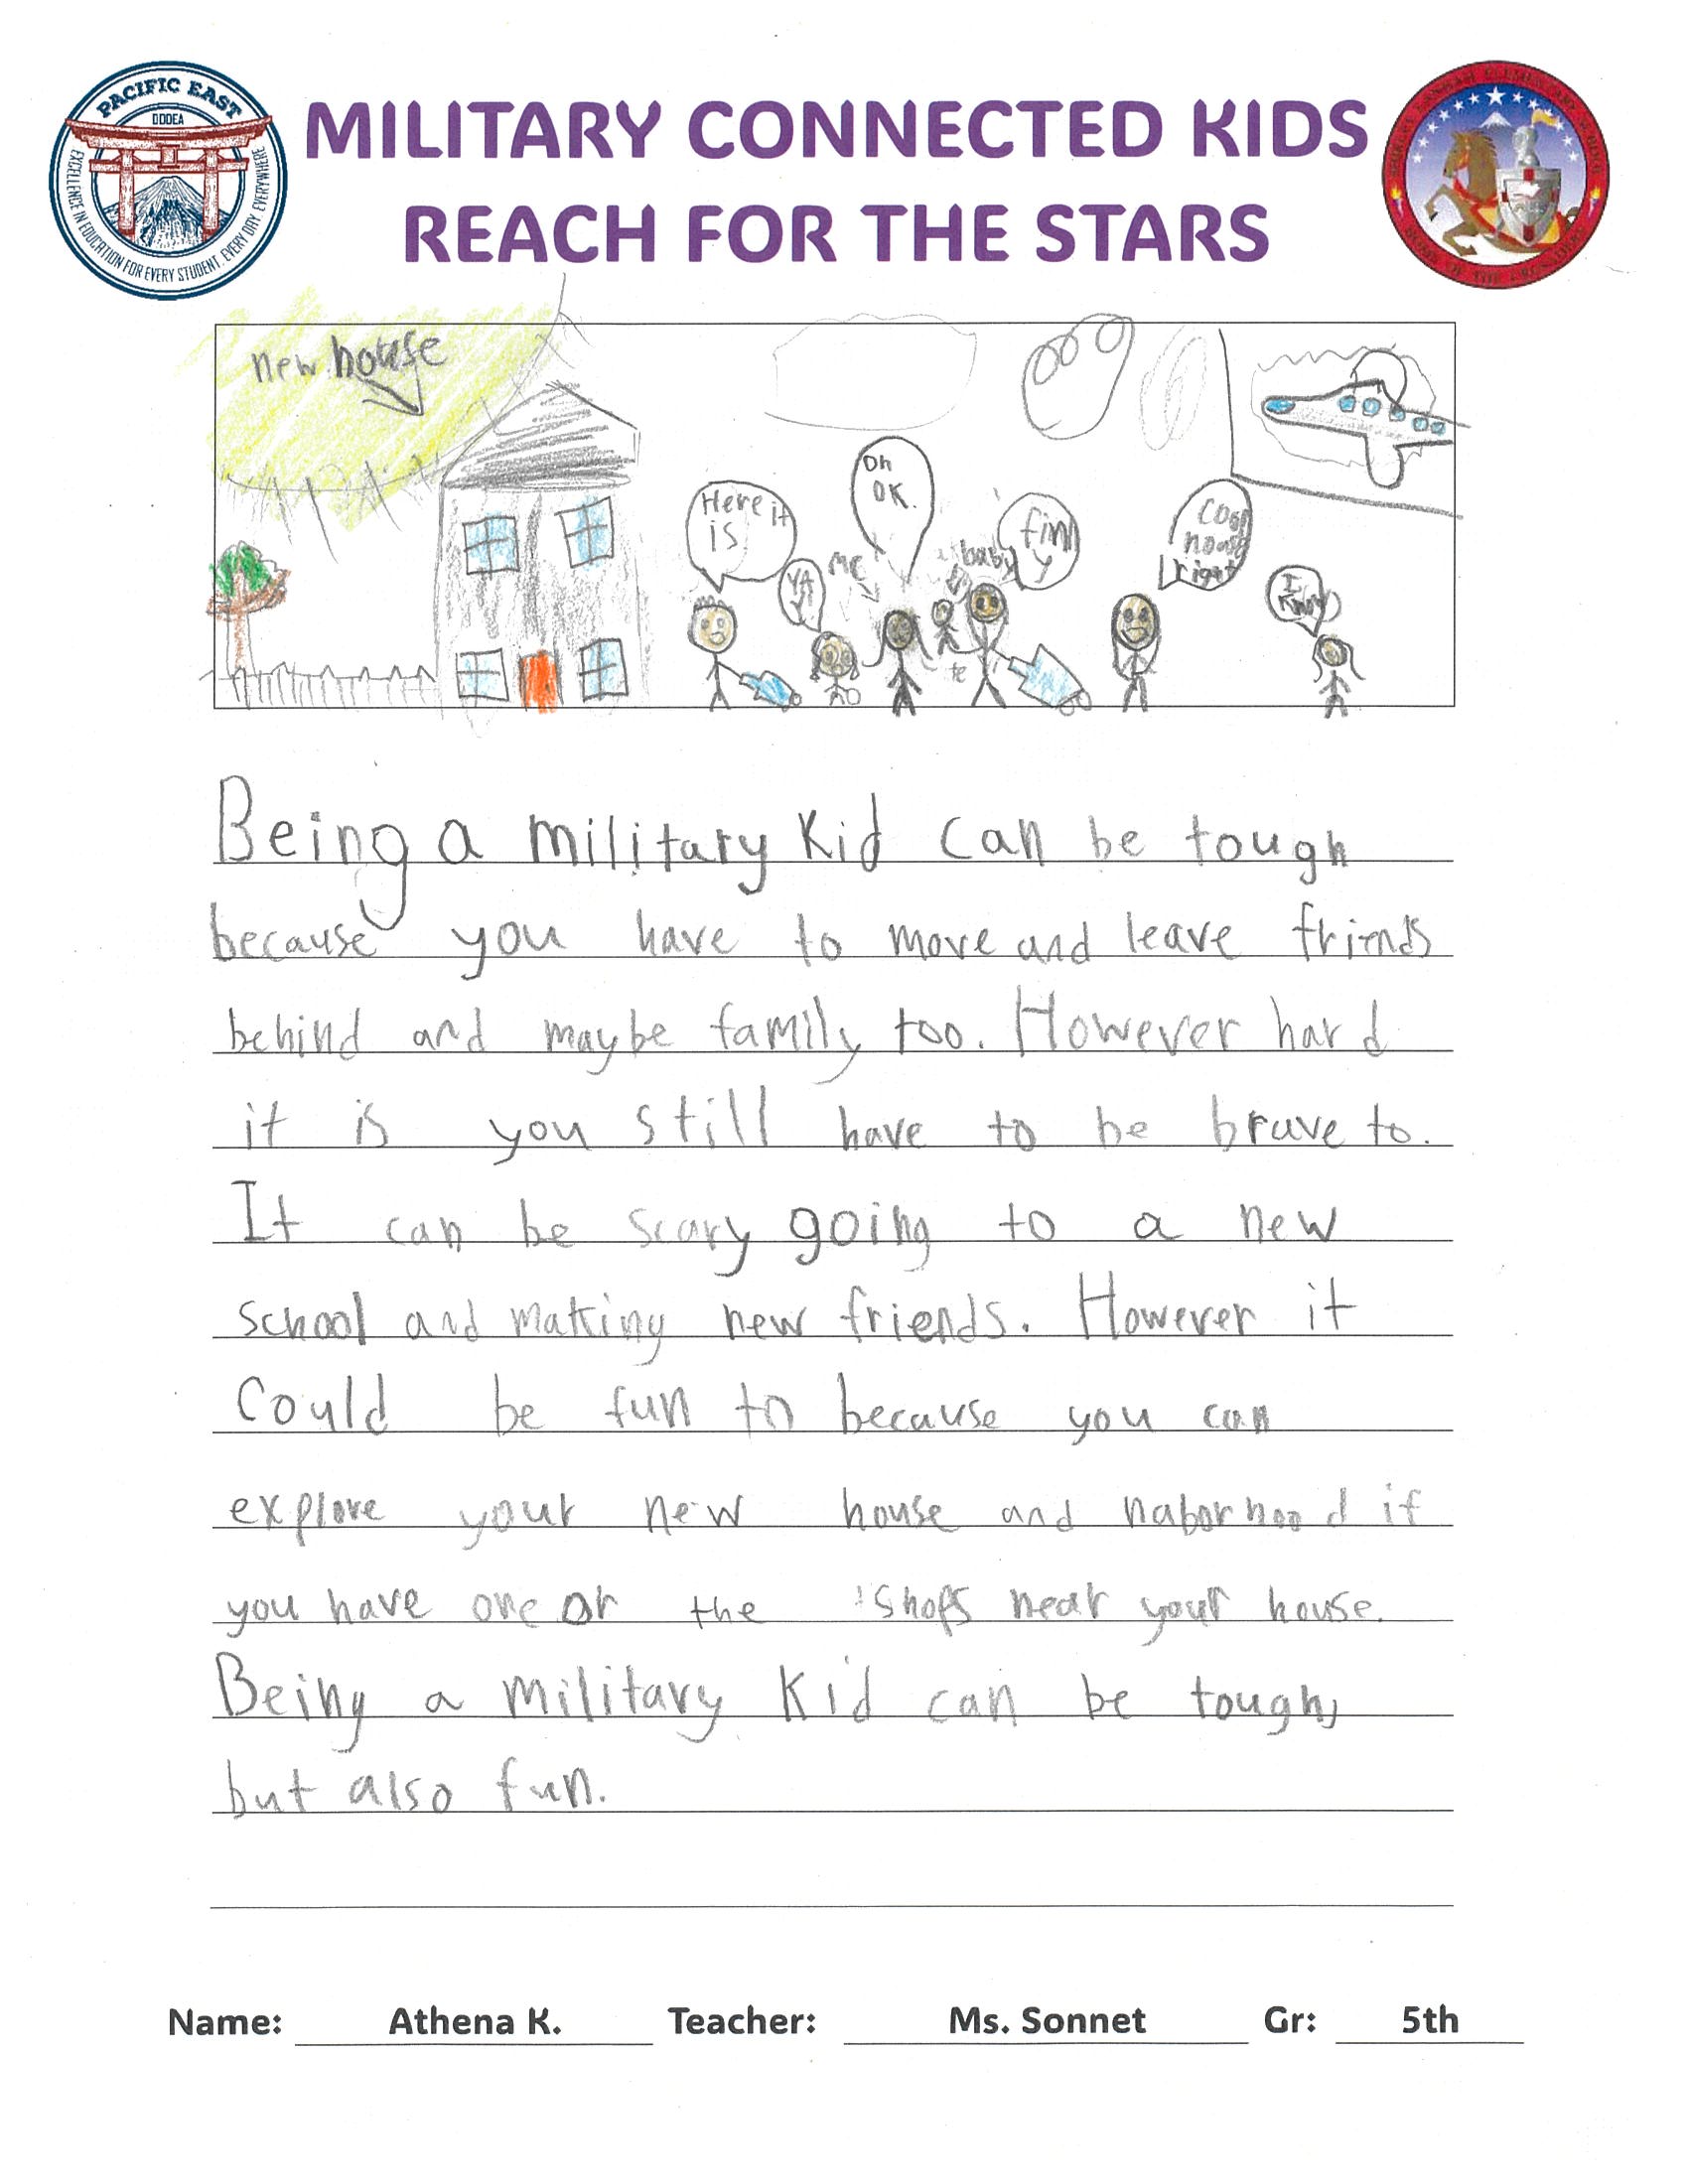 PACIFIC EAST
DODEA
EXCELLENCE IN EDUCATION FOR EVERY STUDENT, EVERY DAY, EVERYWHERE
MILITARY CONNECTED KIDS
REACH FOR THE STARS
new house
Here it
is
YA
Me
Oh
OK.
baby
Cool
right
I
Know
Being a military Kid can be tough
because you have to move and leave friends
behind and maybe family too. However hard
it is you still have to be brave to.
It can be scary going to a new
school and making new friends. However it
Could be fun to because you can
explore your new house and naborhood if
you have one or the shops near your house.
Being a military Kid can be tough,
but also fun.
Name: Athena K. Teacher: Ms. Sonnet Gr: 5th